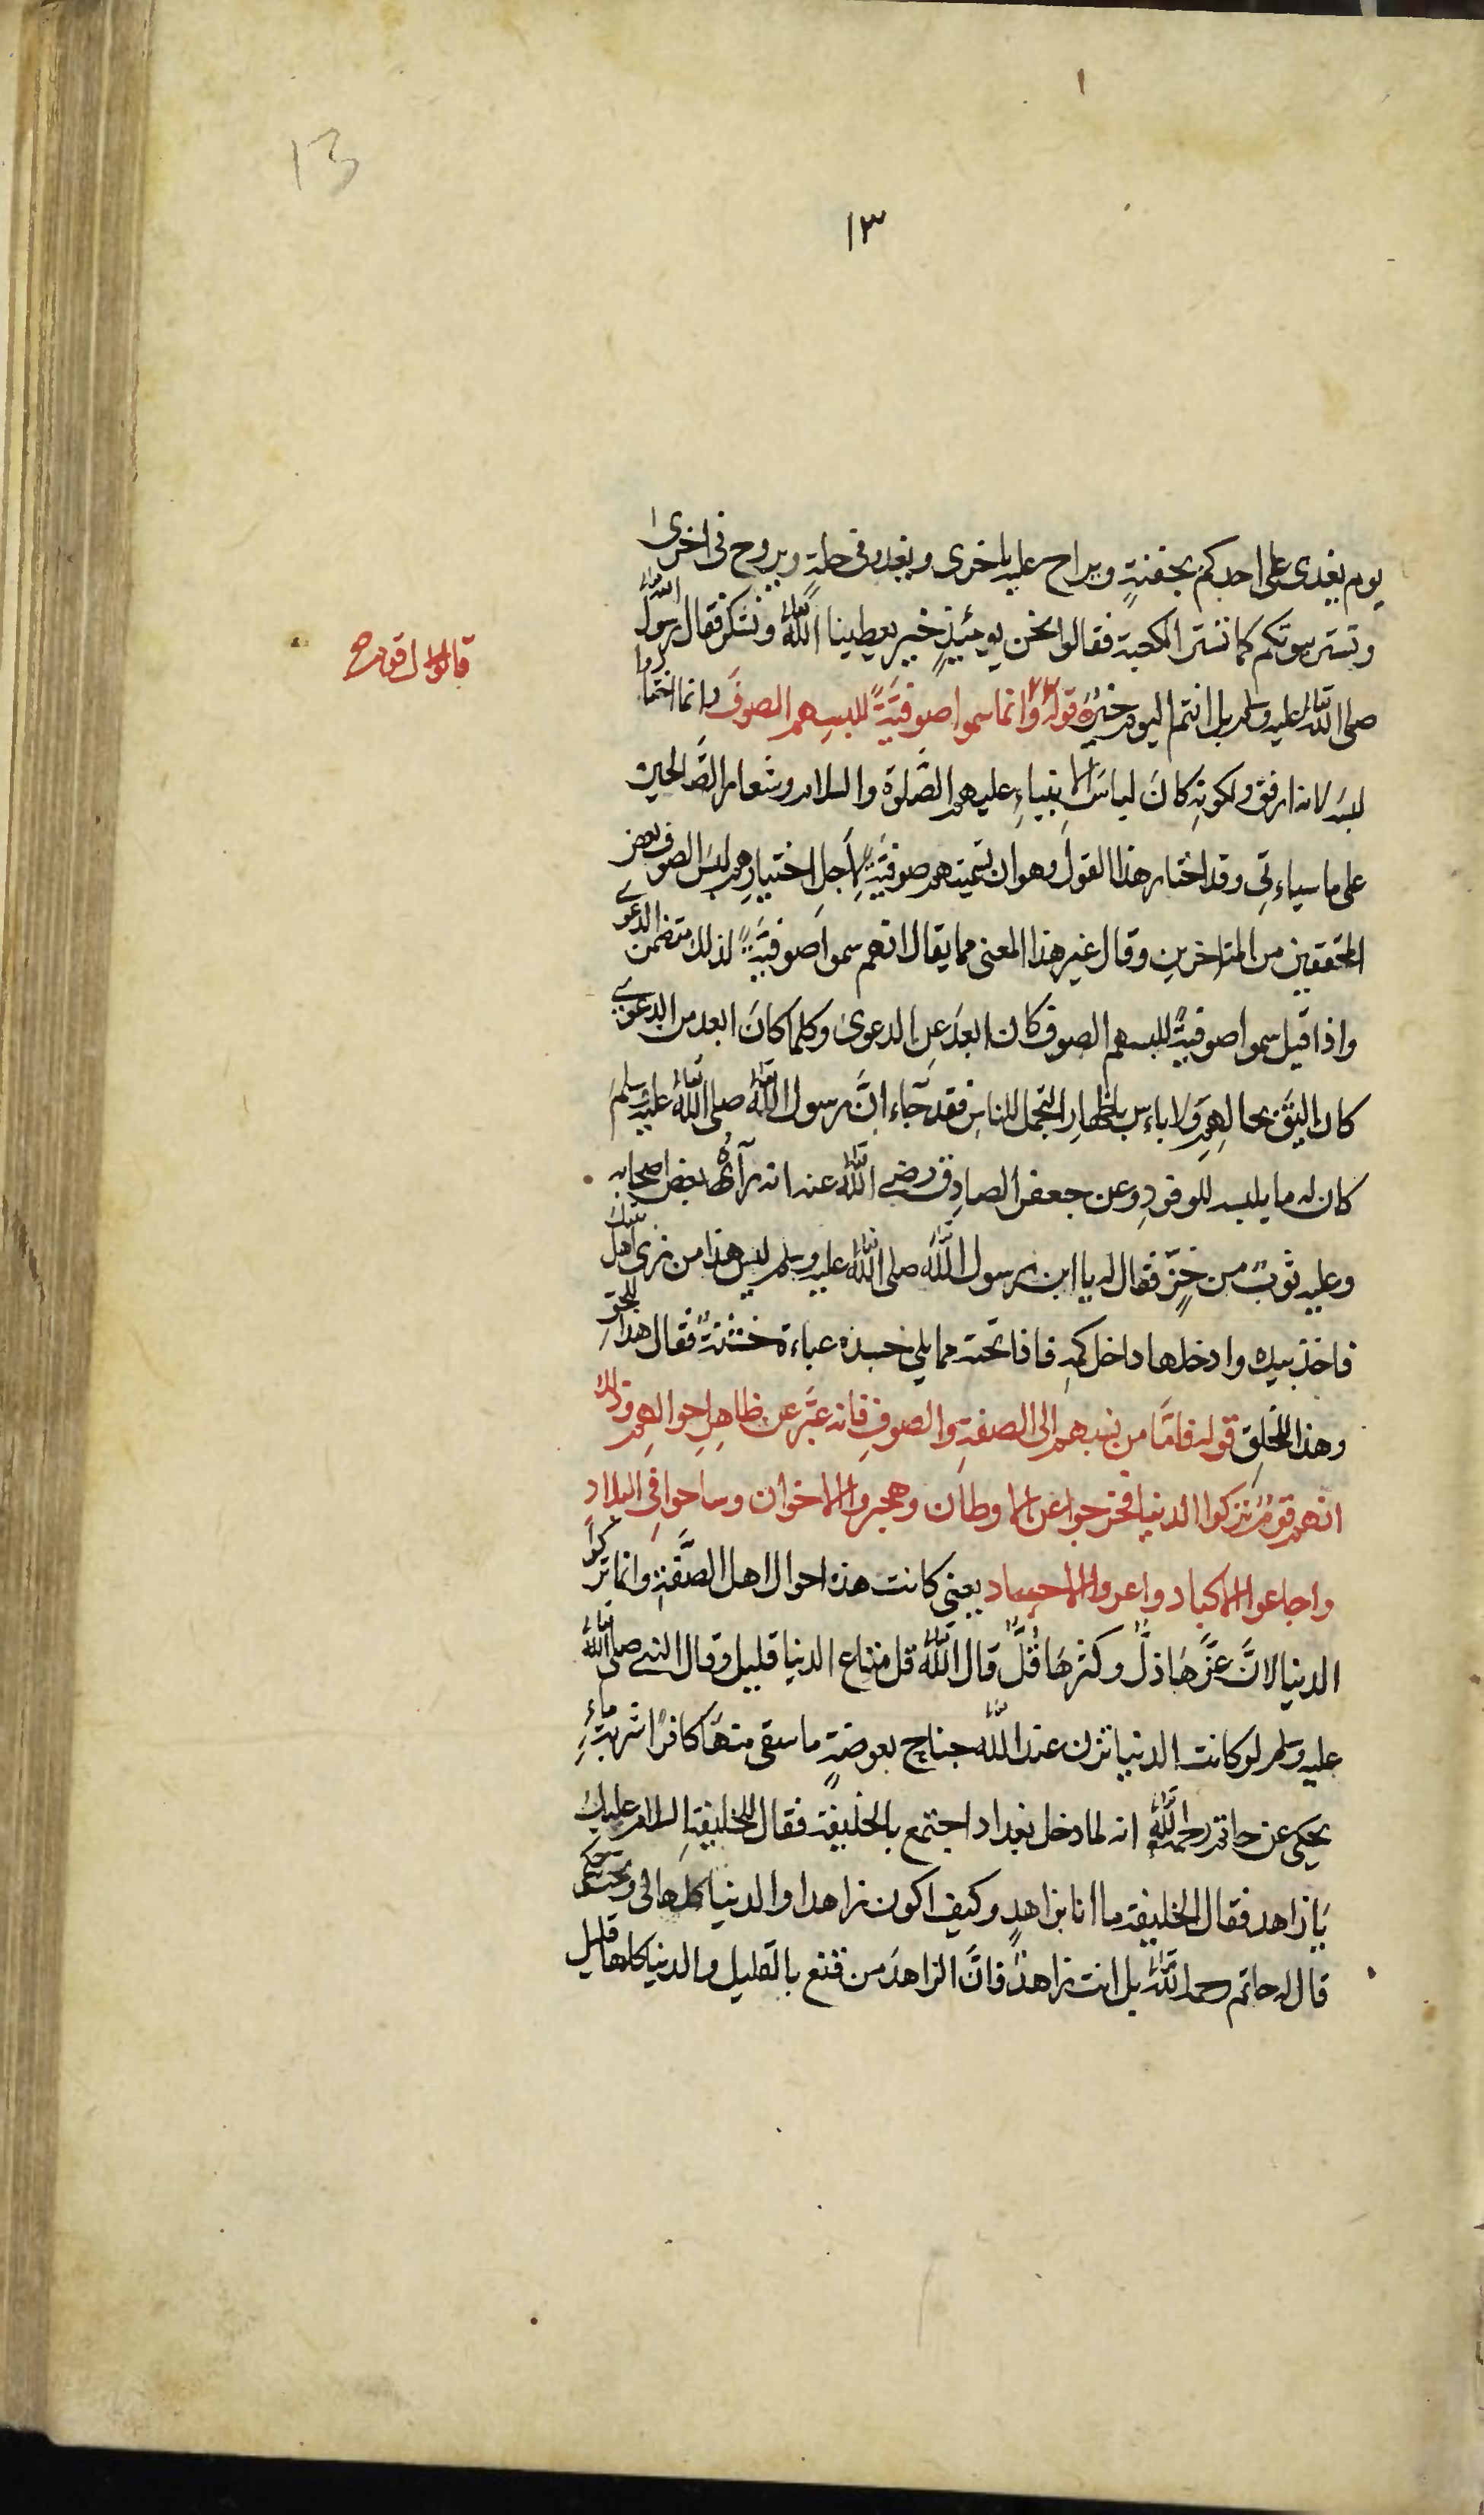 ١
13
١٣
يوم يغدى على احدكم بجفنةٍ ويراح عليه باخرى ويغدو فى حلةٍ ويروح فى اخرى
وتستر بيوتكم كما تستر الكعبة فقالوا نحن يومئذٍ خير يعطينا اللهُ تعالى ونشكر فقال رسول الله
صلى الله تعالى عليه وسلم بل انتم اليوم خيرٌ قوله وانما سموا صوفيّةً للبسهم الصوفَ وانما اختاروا
لبسه لانه ارفق ولكونه كانَ لباسَ الانبياءِ عليهم الصَّلوة والسلام وشعار الصَّالحين
على ما سياءتى وقد اختار هذا القول وهو ان تسميتهم صوفيَّةً لِاَجلِ اختيارِهم لبسَ الصوف بعض
المحققين من المتاخرين وقال غير هذا المعنى مما يقال انهم سموا صوفيَّةً لذلك متضمن الدعوى
واذا قيل سموا صوفيةً للبسهم الصوف كان ابعدَ عن الدعوى وكلما كانَ ابعد من الدعوى
كان اليَقَ بحالهِم ولا باءس باظهارِ التجمل للناسِ فقد جَاء انَّ رسول الله تعالى صلى الله تعالى عليه وسلم
كان له ما يلبسه للوفودِ وعن جعفر الصادِق رضى الله تعالى عنه انه رآه بعض اصحابه
وعليه ثوبٌ من خزٍّ فقال له يا ابن رسول الله صلى الله تعالى عليه وسلم ليس هذا من زى اهل بيتك
فاخذ بيده وادخلها داخل كمهِ فاذا تحته مما يلى جسده عباءة خشنةٌ فقال هذا للحق
وهذا للخلق قوله فاما من نسبهم الى الصفةِ والصوفِ فانه عبَّر عن ظاهرِ احوالهم وذلك
انهم قوم تركوا الدنيا فخرجوا عن الاوطان وهجروا الاخوان وساحوا فى البلاد
واجاعوا الاكباد واعروا الاجساد يعنى كانت هذه احوال اهل الصَّفّةِ وانما تركوا
الدنيا لانَّ عزَّهَا ذلٌّ وكثرهَا قُلٌّ قال الله تعالى قل متاع الدنيا قليل وقال النبى صلى الله تعالى
عليه وسلم لو كانت الدنيا تزن عند الله تعالى جناح بعوضةٍ ما سقى منهَا كافرًا شربة ماءٍ
يحكى عن حاتم رحمه الله انه لما دخل بغداد اجتمع بالخليفة فقال للخليفةِ السلام عليك
يَا زاهد فقال الخليفة ما انا بزاهدٍ وكيف اكون زاهدا والدنيا كلها لى وتحت حكمى
قال له حاتم رحمه الله تعالى بل انت زاهدٌ فانَّ الزاهدَ من قنع بالقليل والدنيا كلها قليل